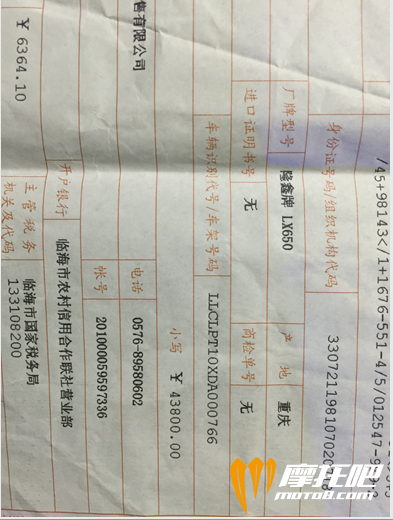 /45+98143</1+1676-551-4/5/012547-9
身份证号码/组织机构代码
厂牌型号 隆鑫牌 LX650 产地 重庆
进口证明书号 无 商检单号 无
车辆识别代号/车架号码 LLCLPT10XDA000766
小写 ￥43800.00
售有限公司 电话 0576-89580602
帐号 201000059597336
开户银行 临海市农村信用合作联社营业部
￥6364.10 主管税务 临海市国家税务局
机关及代码 133108200
摩托吧
moto8.com